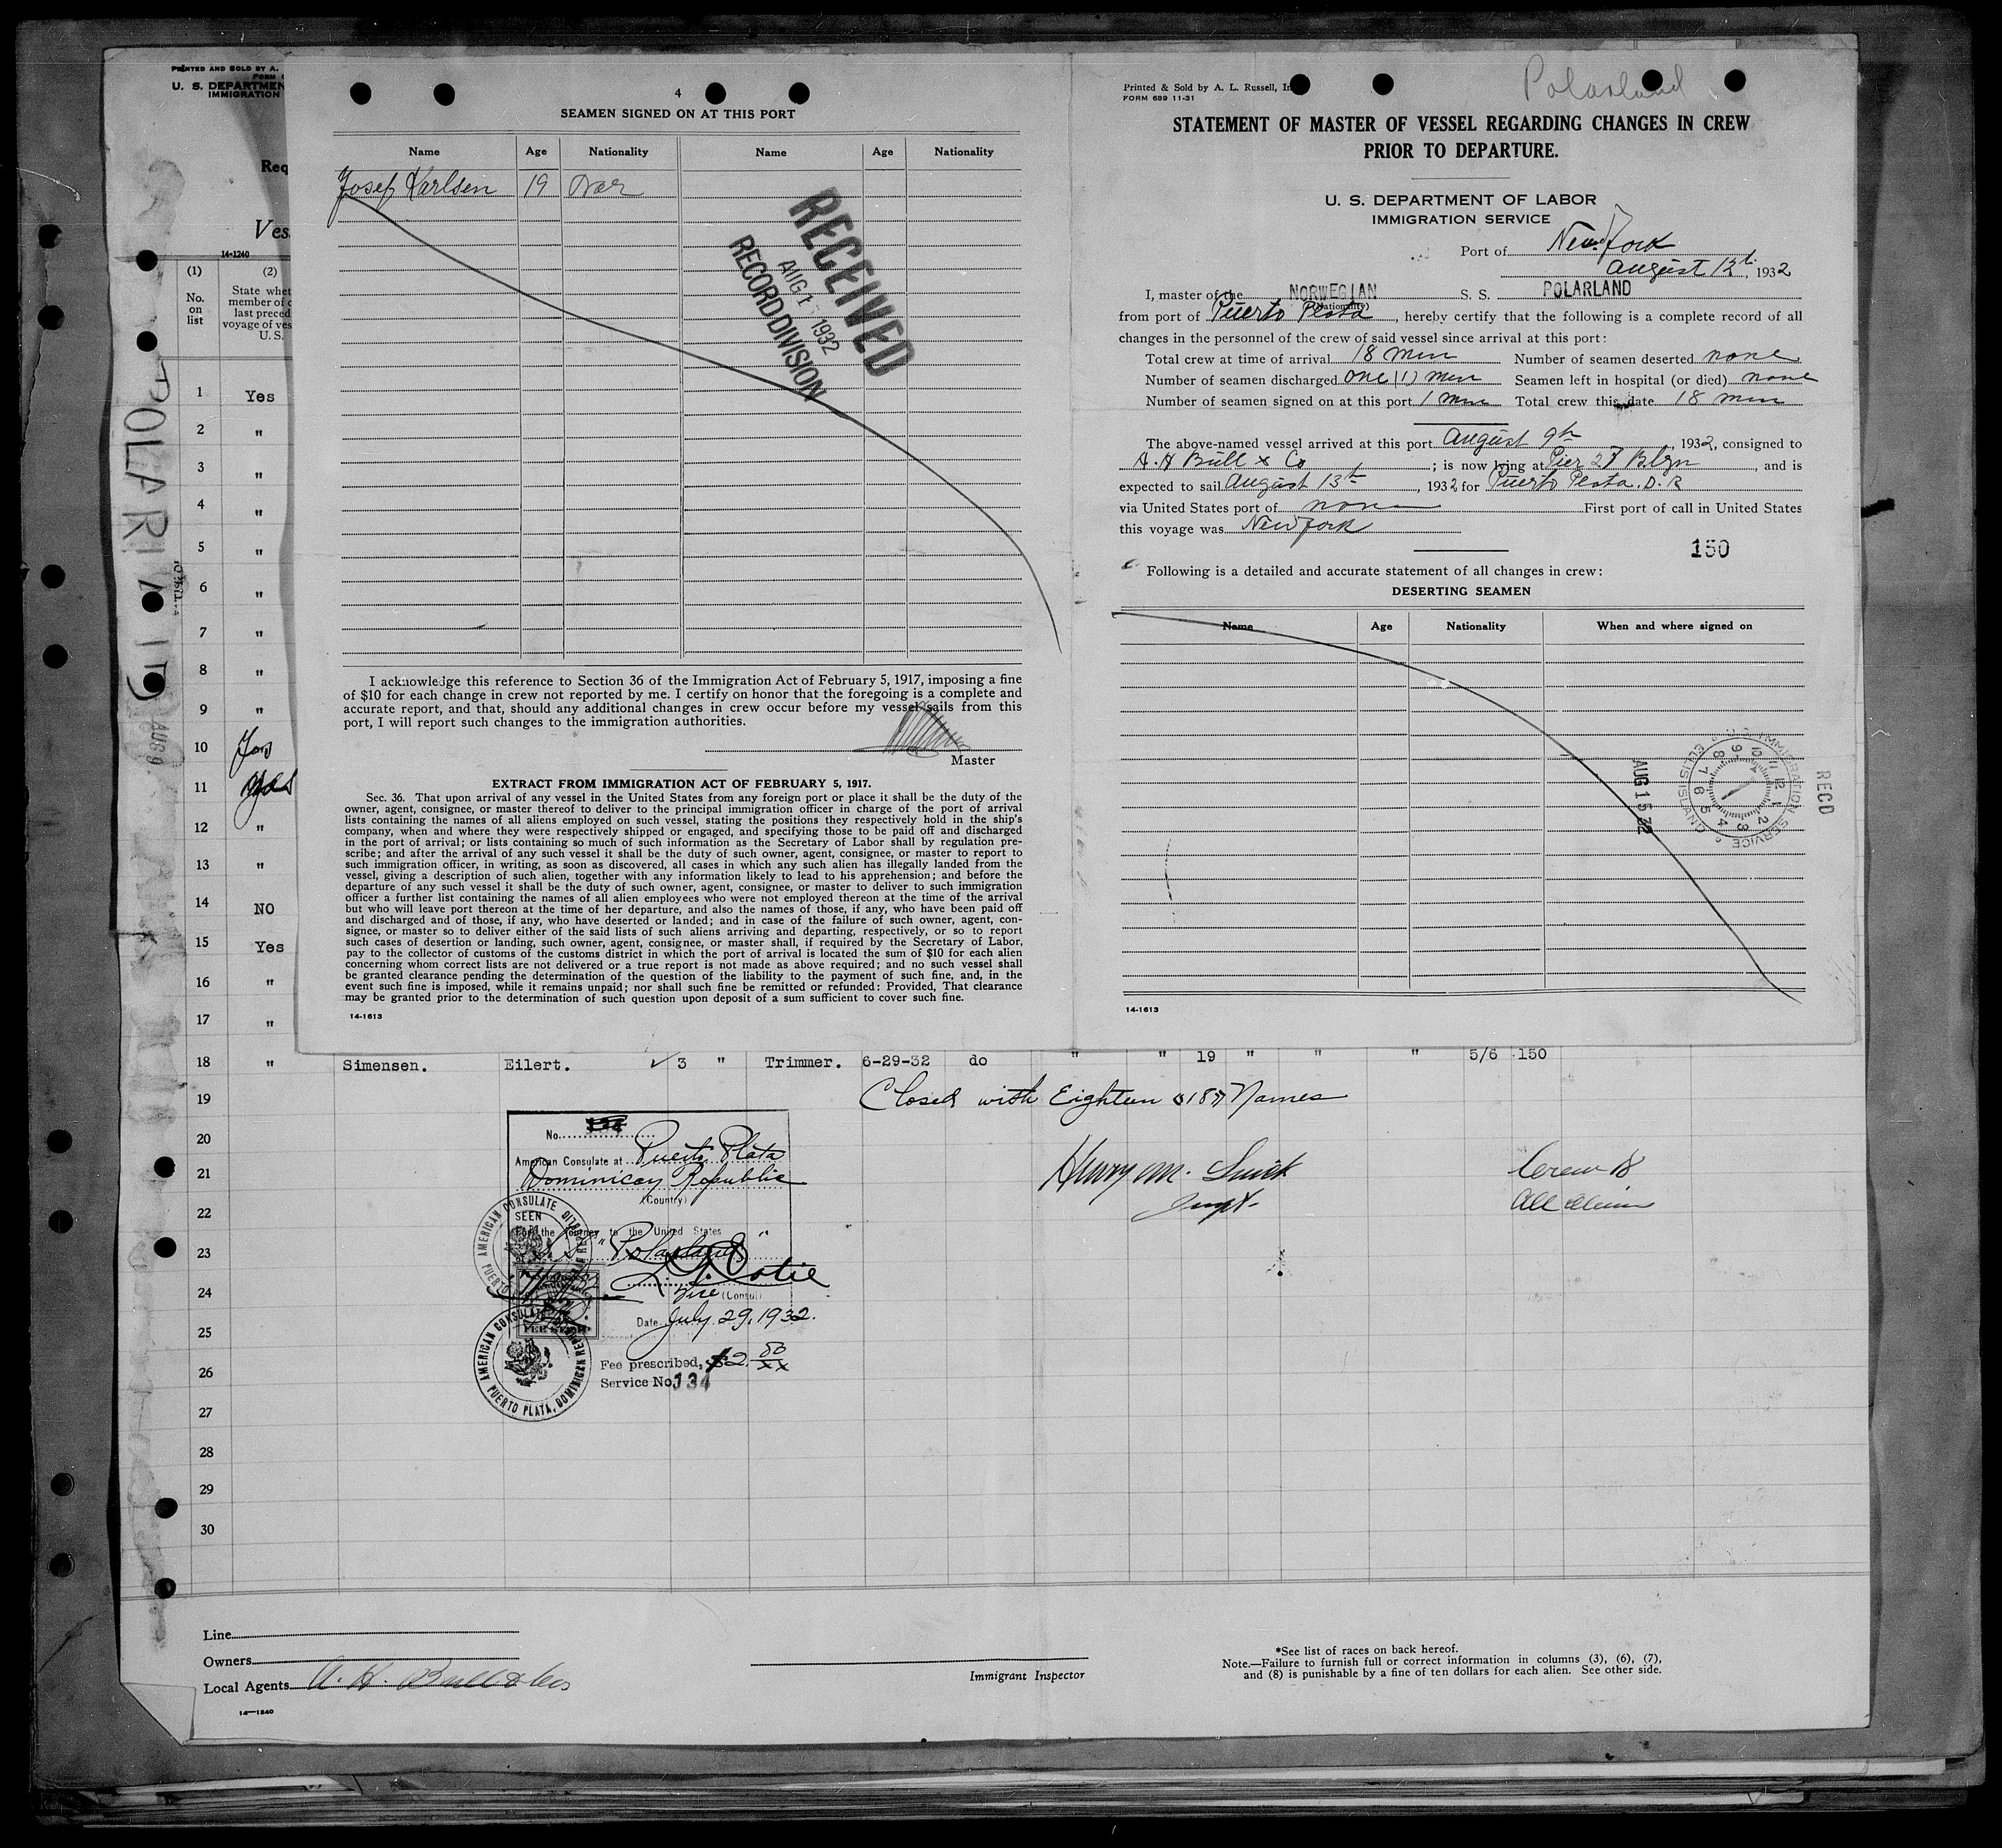 PRINTED AND SOLD BY A.
U. S. DEPARTMEN
IMMIGRATION
Req
Ves
14-1240
(1)
(2)
No.
on
list
State whet
member of c
last preced
voyage of ves
U. S.
1 Yes
2 "
3 "
4 "
5 "
6 "
7 "
8 "
9 "
10 Yes
11
12 "
13 "
14 NO
15 Yes
16 "
17 "
POLARLA
AUG 9
4
SEAMEN SIGNED ON AT THIS PORT
Name Age Nationality Name Age Nationality
Josef Karlsen 19 Nor
RECEIVED
AUG 1 1932
RECORD DIVISION
I acknowledge this reference to Section 36 of the Immigration Act of February 5, 1917, imposing a fine
of $10 for each change in crew not reported by me. I certify on honor that the foregoing is a complete and
accurate report, and that, should any additional changes in crew occur before my vessel sails from this
port, I will report such changes to the immigration authorities.
Master
EXTRACT FROM IMMIGRATION ACT OF FEBRUARY 5, 1917.
Sec. 36. That upon arrival of any vessel in the United States from any foreign port or place it shall be the duty of the
owner, agent, consignee, or master thereof to deliver to the principal immigration officer in charge of the port of arrival
lists containing the names of all aliens employed on such vessel, stating the positions they respectively hold in the ship's
company, when and where they were respectively shipped or engaged, and specifying those to be paid off and discharged
in the port of arrival; or lists containing so much of such information as the Secretary of Labor shall by regulation pre-
scribe; and after the arrival of any such vessel it shall be the duty of such owner, agent, consignee, or master to report to
such immigration officer, in writing, as soon as discovered, all cases in which any such alien has illegally landed from the
vessel, giving a description of such alien, together with any information likely to lead to his apprehension; and before the
departure of any such vessel it shall be the duty of such owner, agent, consignee, or master to deliver to such immigration
officer a further list containing the names of all alien employees who were not employed thereon at the time of the arrival
but who will leave port thereon at the time of her departure, and also the names of those, if any, who have been paid off
and discharged and of those, if any, who have deserted or landed; and in case of the failure of such owner, agent, con-
signee, or master so to deliver either of the said lists of such aliens arriving and departing, respectively, or so to report
such cases of desertion or landing, such owner, agent, consignee, or master shall, if required by the Secretary of Labor,
pay to the collector of customs of the customs district in which the port of arrival is located the sum of $10 for each alien
concerning whom correct lists are not delivered or a true report is not made as above required; and no such vessel shall
be granted clearance pending the determination of the question of the liability to the payment of such fine, and, in the
event such fine is imposed, while it remains unpaid; nor shall such fine be remitted or refunded: Provided, That clearance
may be granted prior to the determination of such question upon deposit of a sum sufficient to cover such fine.
14-1613
Polarland
Printed & Sold by A. L. Russell, In
FORM 689 11-31
STATEMENT OF MASTER OF VESSEL REGARDING CHANGES IN CREW
PRIOR TO DEPARTURE.
U. S. DEPARTMENT OF LABOR
IMMIGRATION SERVICE
Port of New York
August 12th, 1932
I, master of the NORWEGIAN S. S. POLARLAND
(Nationality)
from port of Puerto Plata, hereby certify that the following is a complete record of all
changes in the personnel of the crew of said vessel since arrival at this port:
Total crew at time of arrival 18 men Number of seamen deserted none
Number of seamen discharged one (1) men Seamen left in hospital (or died) none
Number of seamen signed on at this port 1 men Total crew this date 18 men
The above-named vessel arrived at this port August 9th, 1932, consigned to
A. H Bull & Co; is now lying at Pier 27 Blyn, and is
expected to sail August 13th, 1932 for Puerto Plata. D. R
via United States port of none First port of call in United States
this voyage was New York
150
Following is a detailed and accurate statement of all changes in crew:
DESERTING SEAMEN
Name Age Nationality When and where signed on
U.S. IMMIGRATION SERVICE ELLIS ISLAND
RECD
AUG 15 32
14-1613
18 " Simensen. Eilert. 3 " Trimmer. 6-29-32 do " " 19 " " " 5/6 150
19 Closed with Eighteen (18) Names
20
21 Henry M. Crew 18
22 Inspt. All aliens
23
24
25
26
27
28
29
30
No.
American Consulate at Puerto Plata
Dominican Republic
(Country)
SEEN
For the journey to the United States
"Polarland"
Vice (Consul)
Date July 29, 1932.
Fee prescribed, $2.50
Service No. 134
AMERICAN CONSULATE
PUERTO PLATA, DOMINICAN REPUBLIC
Line
Owners
Local Agents A. H. Bull & Co
14—1240
Immigrant Inspector
*See list of races on back hereof.
Note.—Failure to furnish full or correct information in columns (3), (6), (7),
and (8) is punishable by a fine of ten dollars for each alien. See other side.